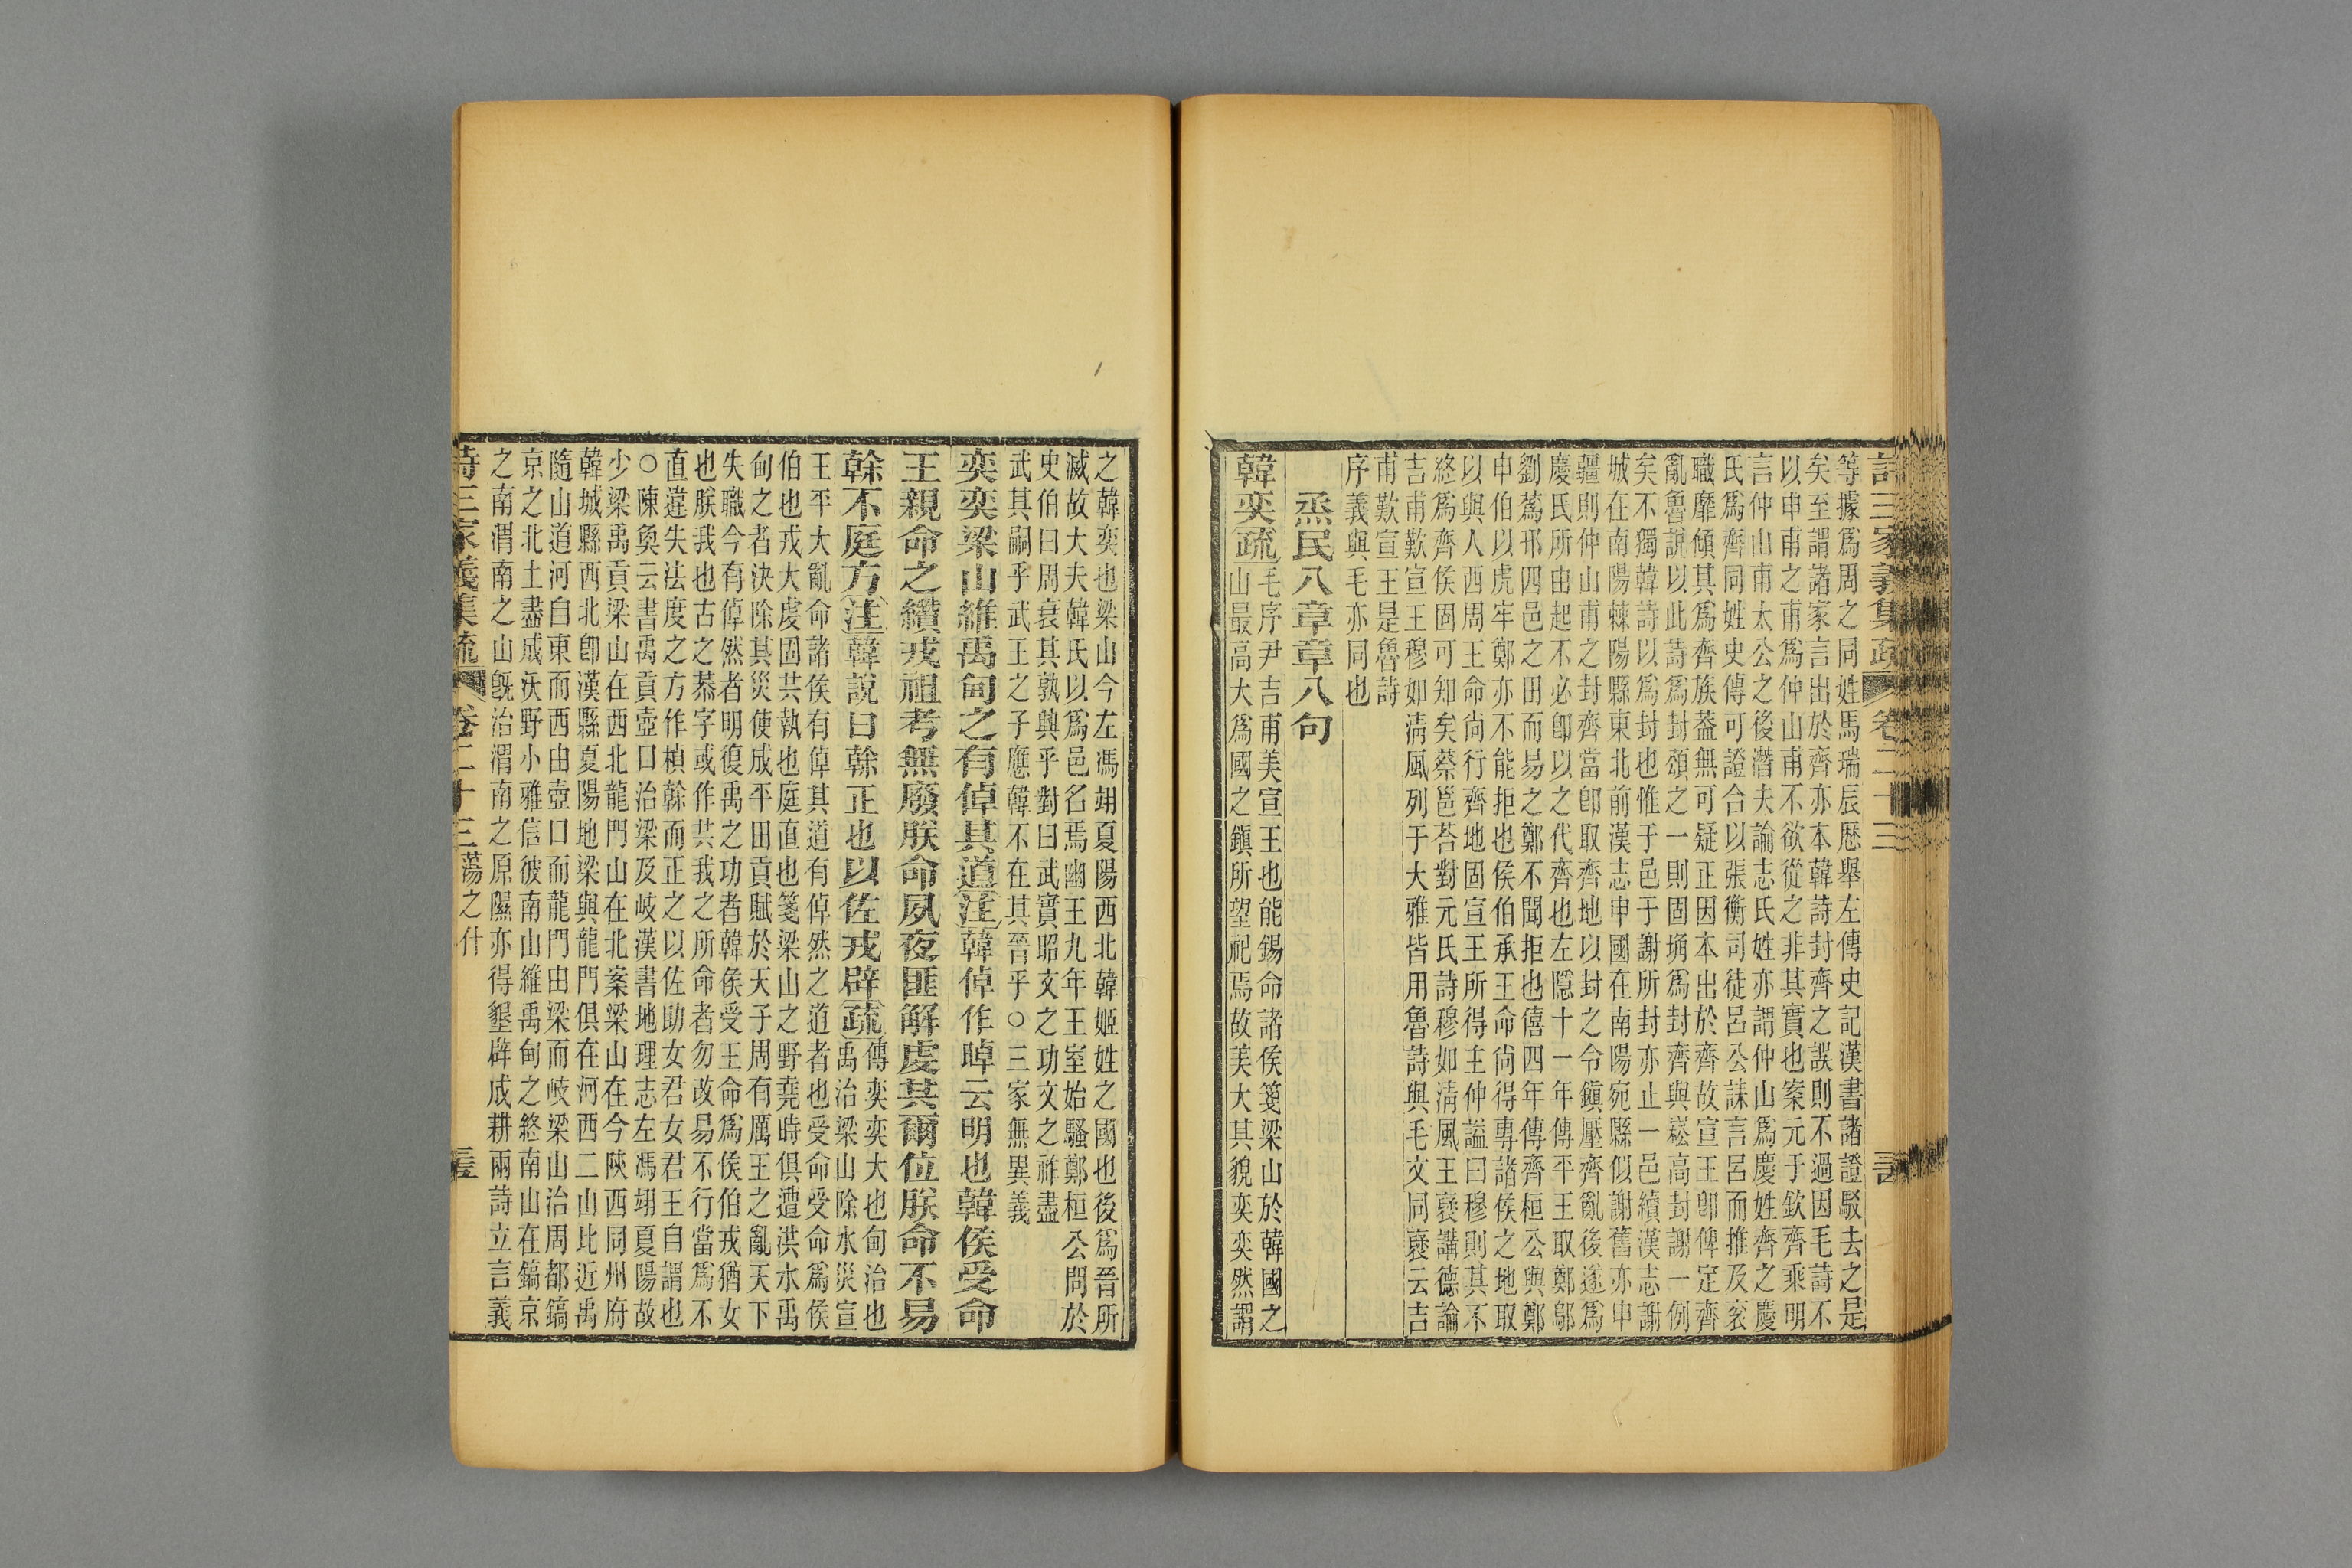 詩三家義集疏 卷二十三
等據爲周之同姓馬瑞辰歷舉左傳史記漢書諸證駁去之是
矣至謂諸家言出於齊亦本韓詩封齊之誤則不過因毛詩不
以申甫之甫爲仲山甫不欲從之非其實也案元于欽齊乘明
言仲山甫太公之後潛夫論志氏姓亦謂仲山爲慶姓齊之慶
氏爲齊同姓史傳可證合以張衡司徒呂公誄言呂而推及衮
職靡傾其爲齊族葢無可疑正因本出於齊故宣王卽俾定齊
亂魯說以此詩爲封頌之一則固塙爲封齊與崧高封謝一例
矣不獨韓詩以爲封也惟于邑于謝所封亦止一邑續漢志謝
城在南陽棘陽縣東北前漢志申國在南陽宛縣似謝舊亦申
疆則仲山甫之封齊當卽取齊地以封之令鎭壓齊亂後遂爲
慶氏所由起不必卽以之代齊也左隱十一年傳平王取鄭鄔
劉蒍邗四邑之田而易之鄭不聞拒也僖四年傳齊桓公與鄭
申伯以虎牢鄭亦不能拒也侯伯承王命尚得專諸侯之地取
以與人西周王命尚行齊地固宣王所得主仲謚曰穆則其不
終爲齊侯固可知矣蔡邕荅對元氏詩穆如淸風王襃講德論
吉甫歎宣王穆如淸風列于大雅皆用魯詩與毛文同襃云吉
甫歎宣王是魯詩
序義與毛亦同也
烝民八章章八句
韓奕疏毛序尹吉甫美宣王也能錫命諸侯箋梁山於韓國之
山最高大爲國之鎭所望祀焉故美大其貌奕奕然謂
之韓奕也梁山今左馮翊夏陽西北韓姬姓之國也後爲晉所
滅故大夫韓氏以爲邑名焉幽王九年王室始騷鄭桓公問於
史伯曰周衰其孰興乎對曰武實昭文之功文之祚盡
武其嗣乎武王之子應韓不在其晉乎○三家無異義
奕奕梁山維禹甸之有倬其道注韓倬作晫云明也韓侯受命
王親命之纘戎祖考無廢朕命夙夜匪解虔共爾位朕命不易
榦不庭方注韓說曰榦正也以佐戎辟疏傳奕奕大也甸治也
禹治梁山除水災宣
王平大亂命諸侯有倬其道有倬然之道者也受命受命爲侯
伯也戎大虔固共執也庭直也箋梁山之野堯時俱遭洪水禹
甸之者決除其災使成平田貢賦於天子周有厲王之亂天下
失職今有倬然者明復禹之功者韓侯受王命爲侯伯戎猶女
也朕我也古之恭字或作共我之所命者勿改易不行當爲不
直違失法度之方作楨榦而正之以佐助女君女君王自謂也
○陳奐云書禹貢壺口治梁及岐漢書地理志左馮翊夏陽故
少梁禹貢梁山在西北龍門山在北案梁山在今陝西同州府
韓城縣西北卽漢縣夏陽地梁與龍門俱在河西二山比近禹
隨山道河自東而西由壺口而龍門由梁而岐梁山治周都鎬
京之北土盡成沃野小雅信彼南山維禹甸之終南山在鎬京
之南渭南之山旣治渭南之原隰亦得墾辟成耕兩詩立言義
詩三家義集疏 卷二十三 蕩之什